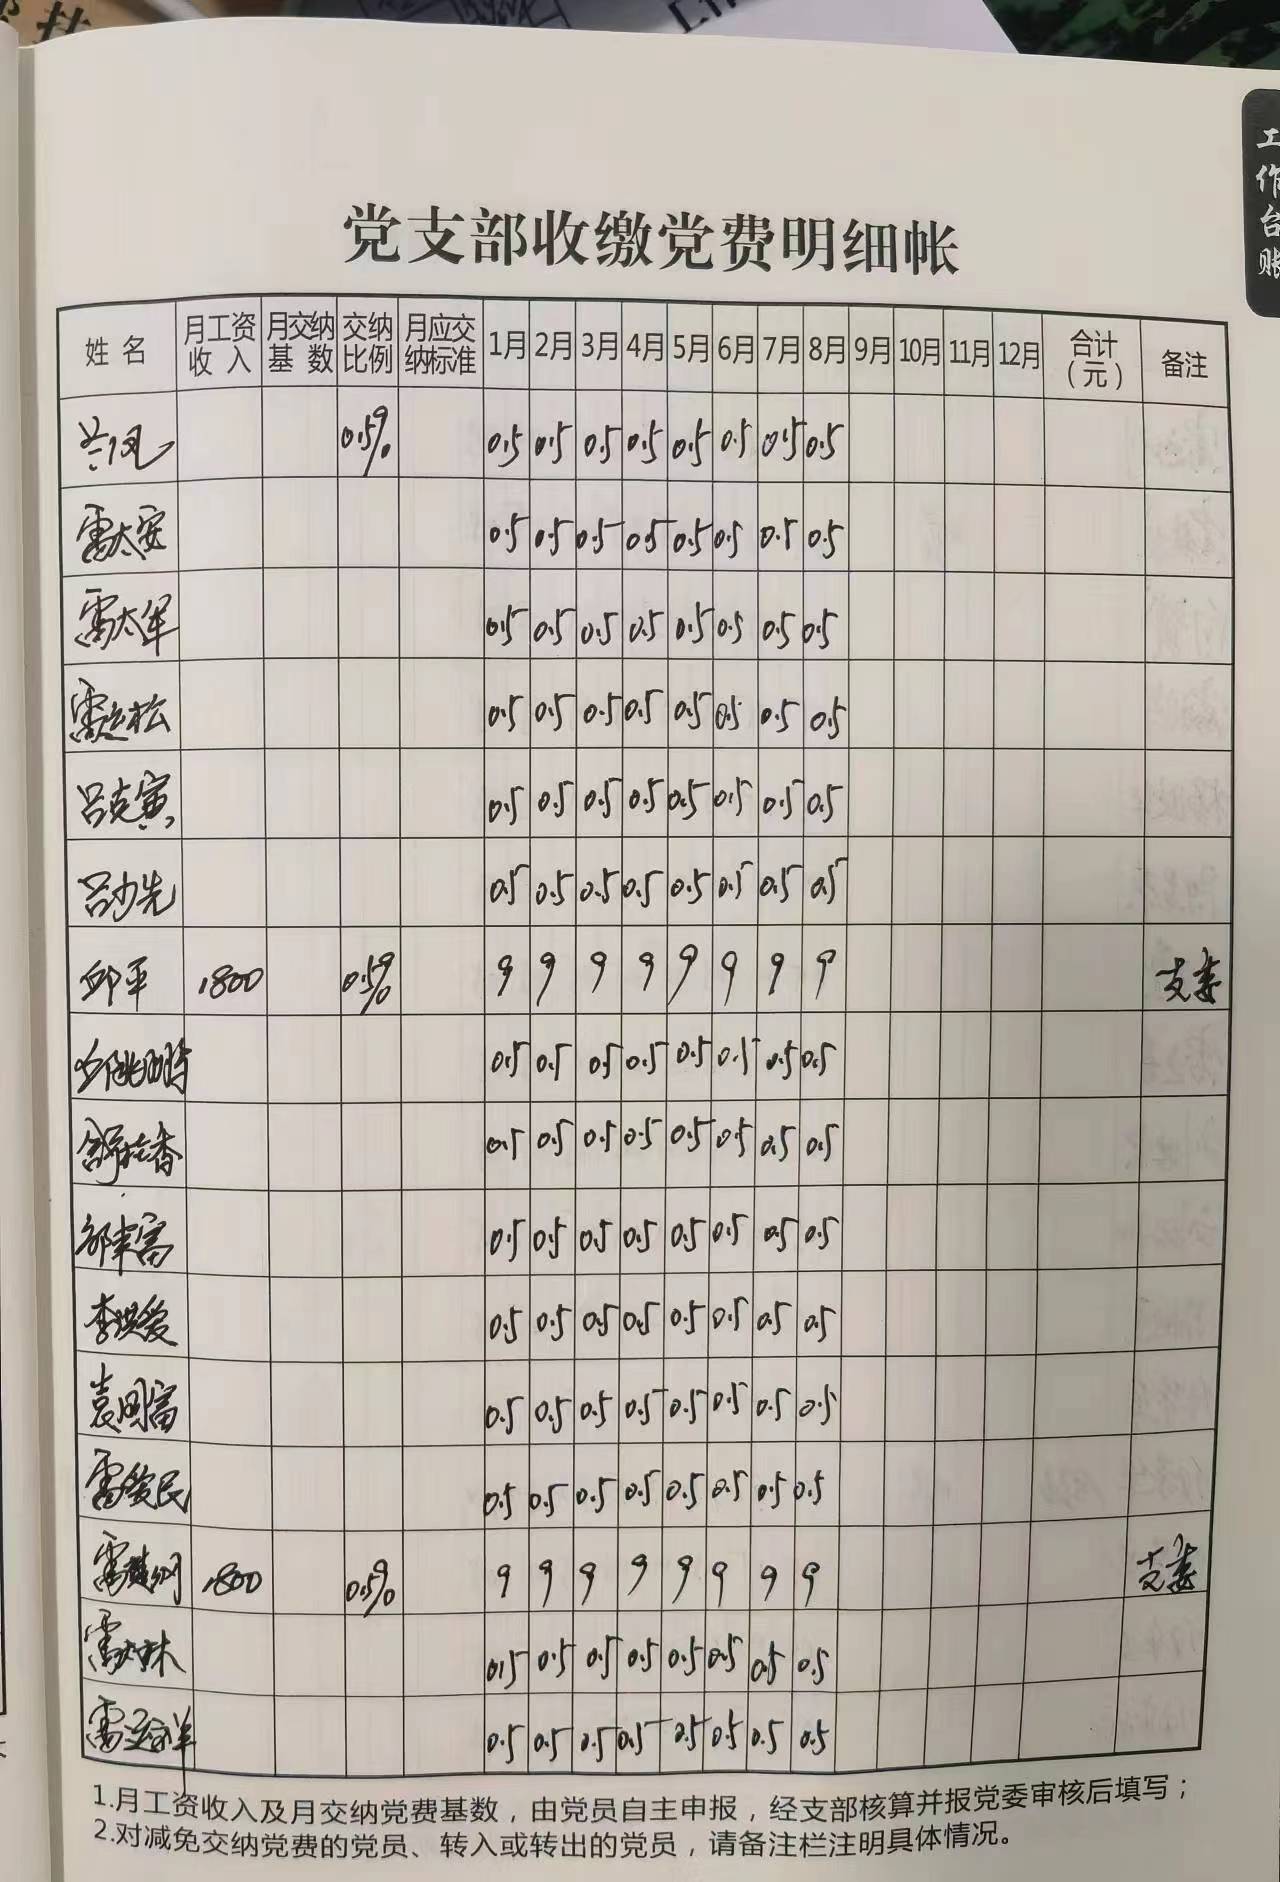 工作台账
党支部收缴党费明细帐
姓名 月工资收入 月交纳基数 交纳比例 月应交纳标准 1月 2月 3月 4月 5月 6月 7月 8月 9月 10月 11月 12月 合计(元) 备注
兰凤 0.5% 0.5 0.5 0.5 0.5 0.5 0.5 0.5 0.5
雷太安 0.5 0.5 0.5 0.5 0.5 0.5 0.5 0.5
雷太军 0.5 0.5 0.5 0.5 0.5 0.5 0.5 0.5
雷 松 0.5 0.5 0.5 0.5 0.5 0.5 0.5 0.5
吕克寅 0.5 0.5 0.5 0.5 0.5 0.5 0.5 0.5
吕少先 0.5 0.5 0.5 0.5 0.5 0.5 0.5 0.5
邱平 1800 0.5% 9 9 9 9 9 9 9 9 支委
0.5 0.5 0.5 0.5 0.5 0.5 0.5 0.5
舒桂香 0.5 0.5 0.5 0.5 0.5 0.5 0.5 0.5
富 0.5 0.5 0.5 0.5 0.5 0.5 0.5 0.5
李洪爱 0.5 0.5 0.5 0.5 0.5 0.5 0.5 0.5
袁明富 0.5 0.5 0.5 0.5 0.5 0.5 0.5 0.5
雷爱民 0.5 0.5 0.5 0.5 0.5 0.5 0.5 0.5
雷 1800 0.5% 9 9 9 9 9 9 9 9 支委
雷 林 0.5 0.5 0.5 0.5 0.5 0.5 0.5 0.5
雷 0.5 0.5 0.5 0.5 0.5 0.5 0.5 0.5
1.月工资收入及月交纳党费基数，由党员自主申报，经支部核算并报党委审核后填写；
2.对减免交纳党费的党员、转入或转出的党员，请备注栏注明具体情况。